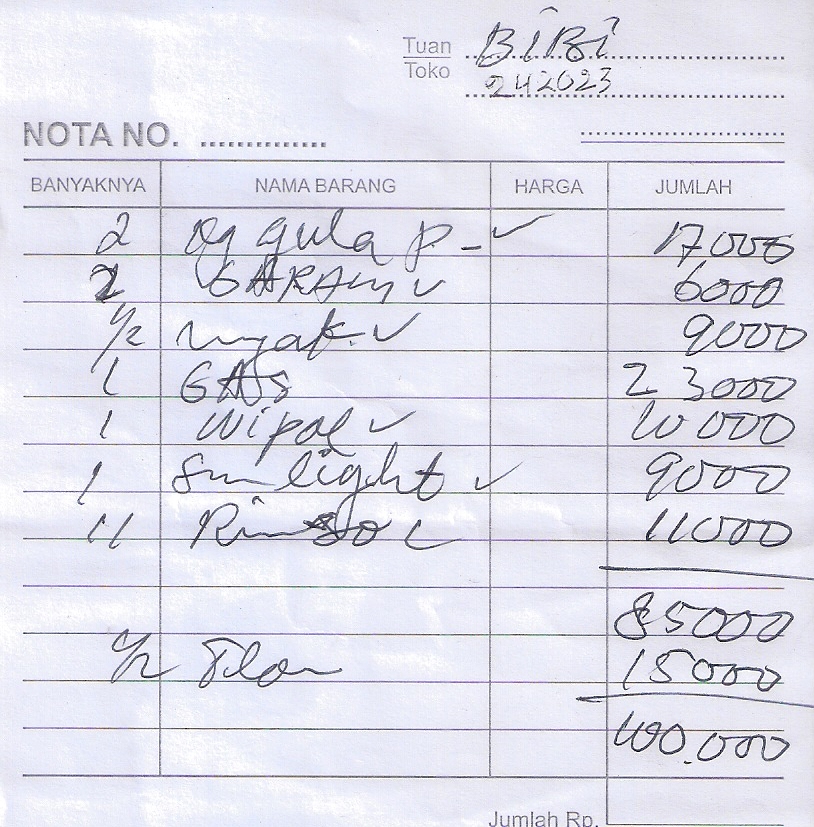 Tuan BiBi
Toko 242023
NOTA NO. ..............
BANYAKNYA NAMA BARANG HARGA JUMLAH
2 gula p - ✓ 17000
2 GARAM ✓ 6000
1/2 myak ✓ 9000
1 GAS 23000
1 wipol ✓ 10000
1 Sunlight ✓ 9000
11 Rinso 11000
85000
1/2 Tlor 15000
100.000
Jumlah Rp.